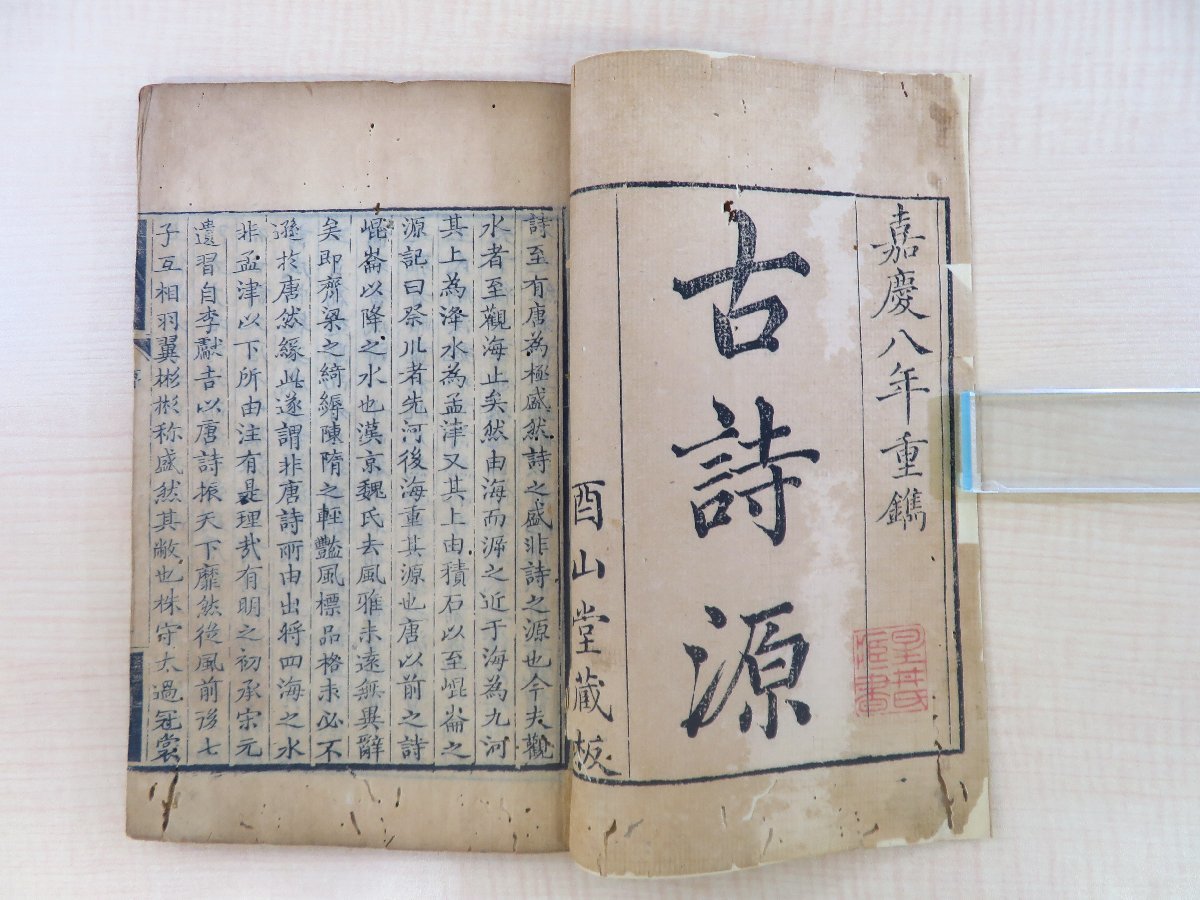 嘉慶八年重鐫
古詩源
酉山堂藏板
詩至有唐為極盛然詩之盛非詩之源也今夫觀
水者至觀海止矣然由海而溯之近于海為九河
其上為洚水為孟津又其上由積石以至崐崙之
源記曰祭川者先河後海重其源也唐以前之詩
崐崙以降之水也漢京魏氏去風雅未遠無異辭
矣即齊梁之綺縟陳隋之輕豔風標品格未必不
遜於唐然緣此遂謂非唐詩所由出將四海之水
非孟津以下所由注有是理哉有明之初承宋元
遺習自李獻吉以唐詩振天下靡然從風前後七
子互相羽翼彬彬称盛然其敝也株守太過冠裳
序